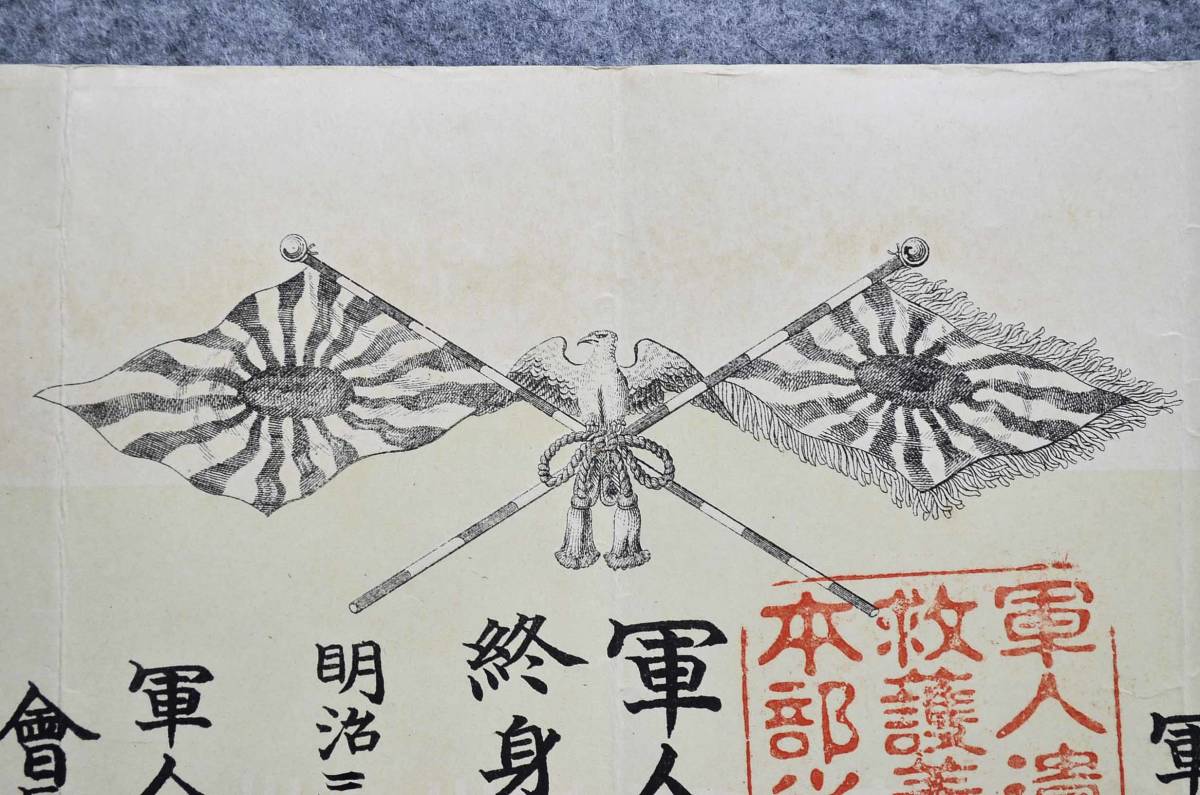 軍
軍人遺
救護義
本部
軍人
終身
明治三
軍人
會